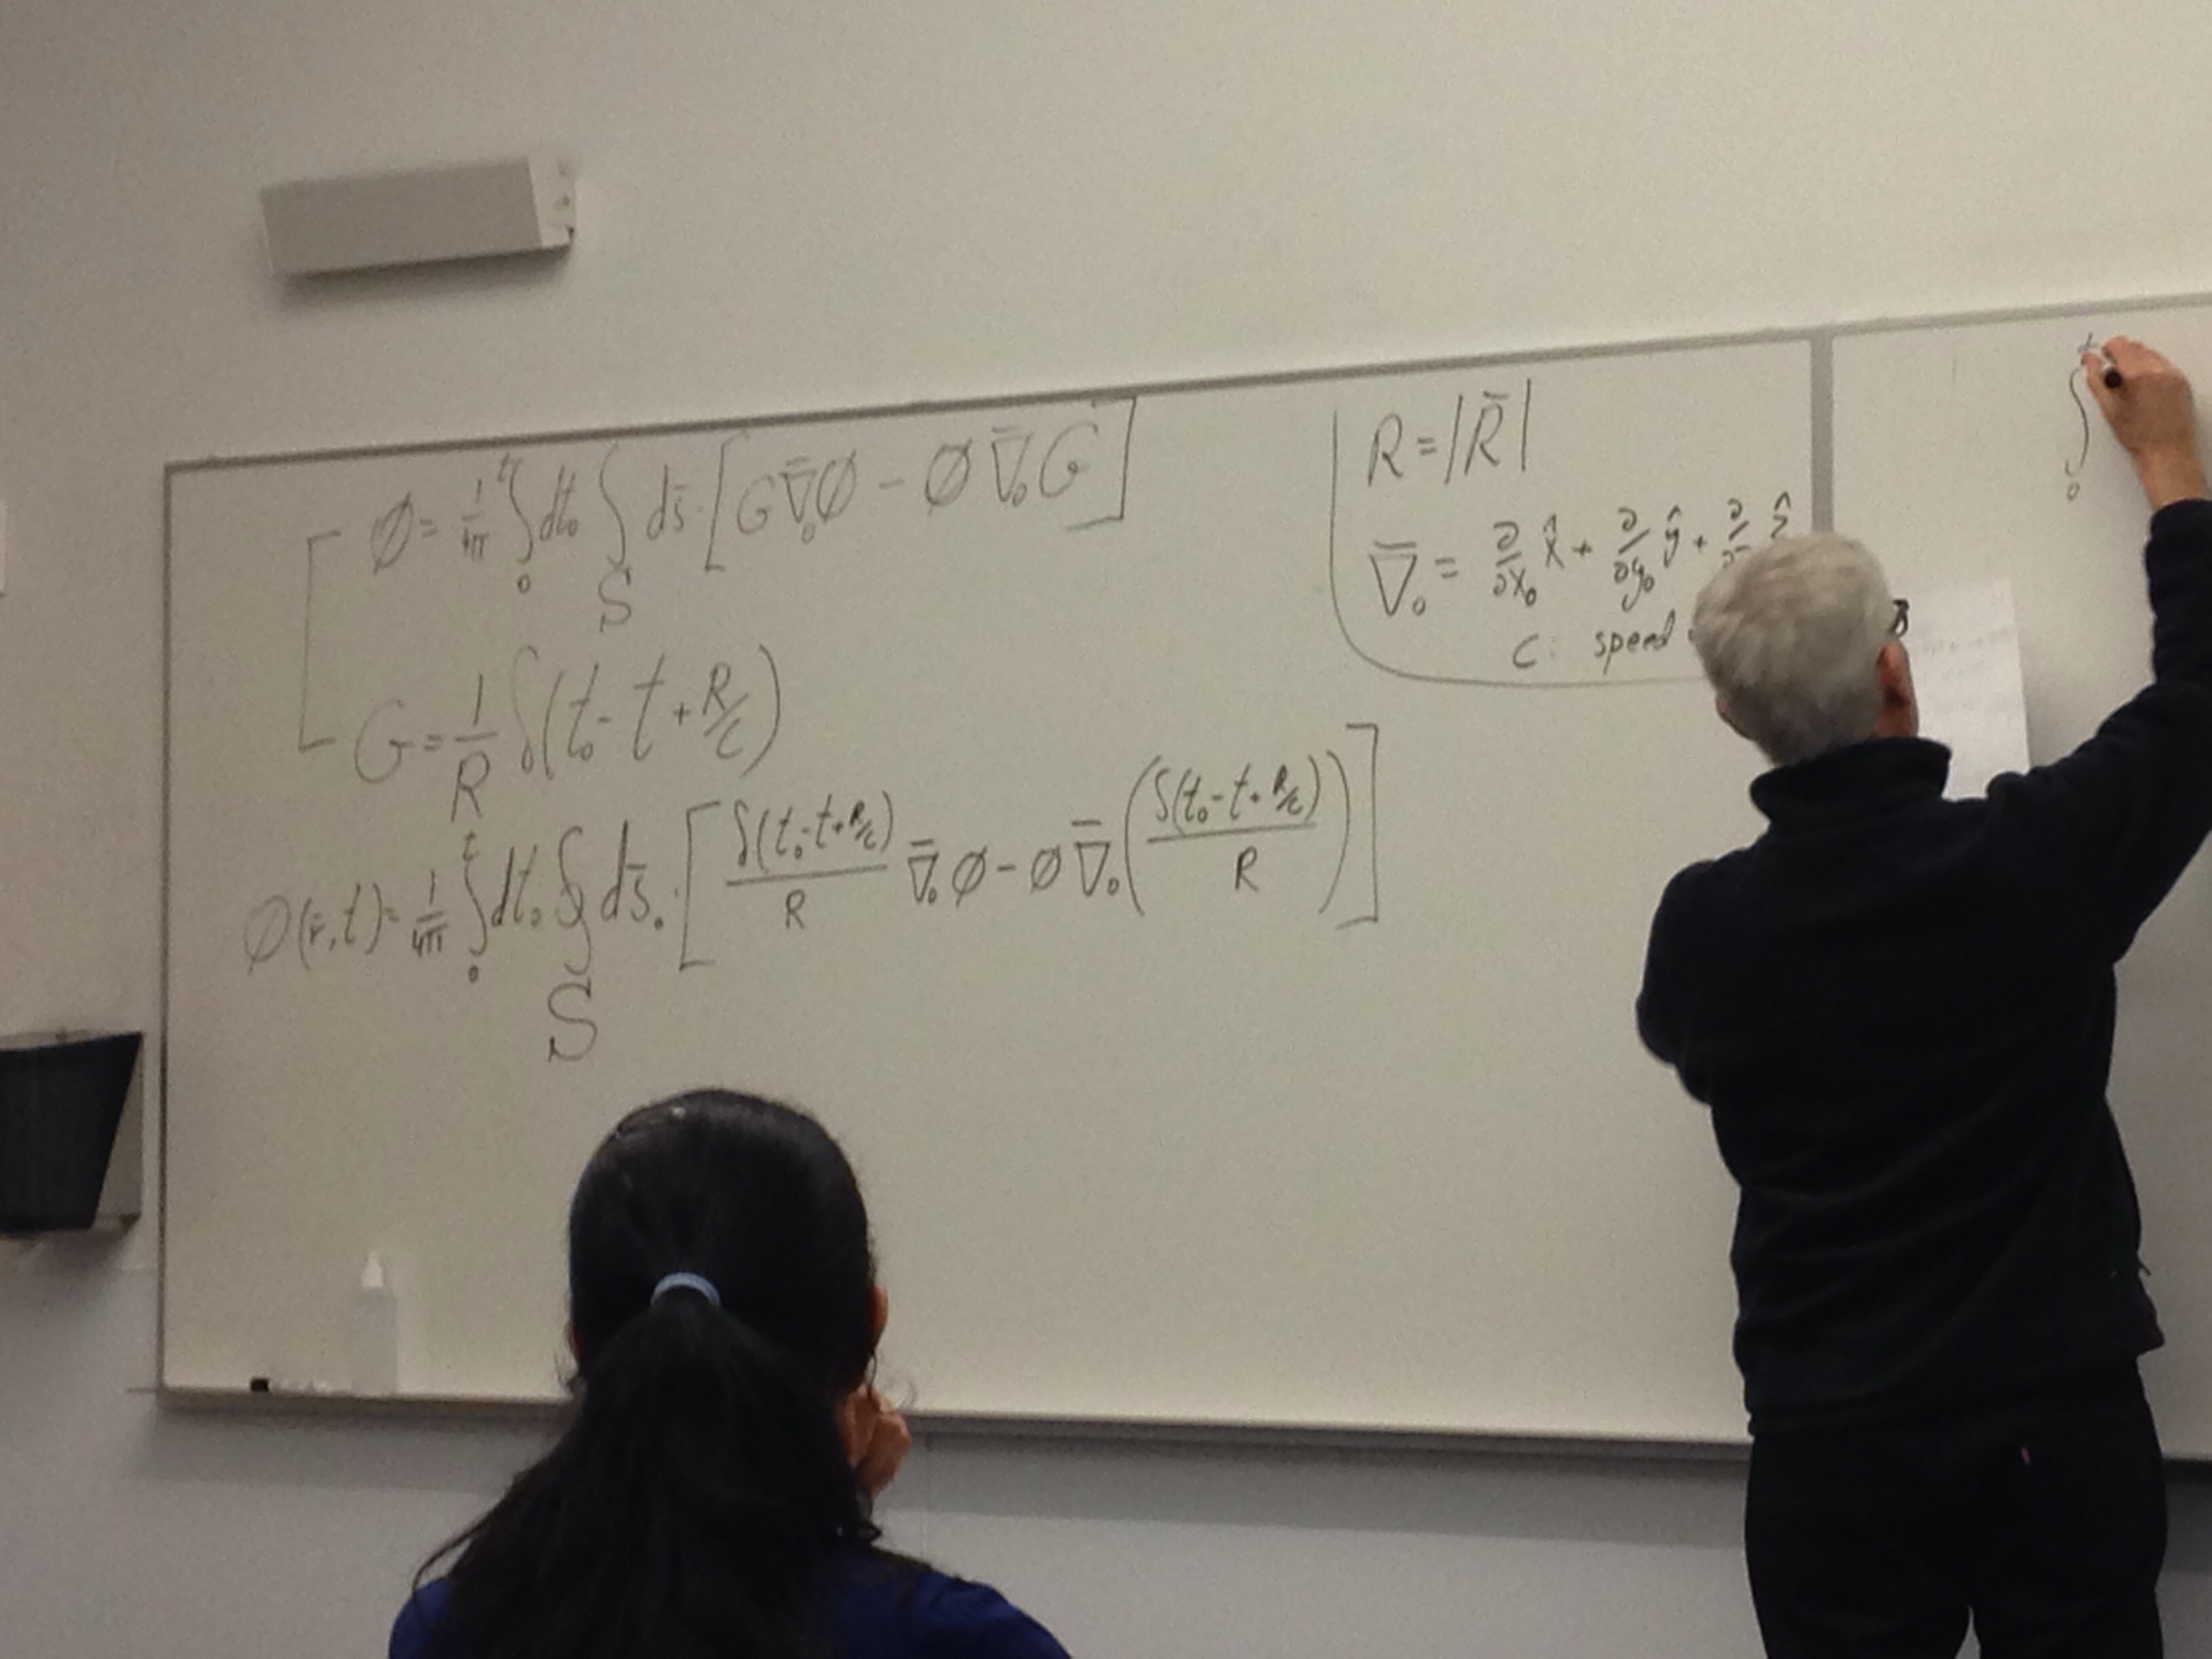 ∅ = 1/4π ∫₀ᵗ dt₀ ∫_S ds̄ · [G ∇̄₀∅ − ∅ ∇̄₀G]
G = 1/R δ(t₀ − t + R/c)
∅(r̄, t) = 1/4π ∫₀ᵗ dt₀ ∮_S ds̄₀ · [δ(t₀ − t + R/c)/R ∇̄₀∅ − ∅ ∇̄₀(δ(t₀ − t + R/c)/R)]
R = |R̄|
∇̄₀ = ∂/∂x₀ x̂ + ∂/∂y₀ ŷ + ∂/∂ ẑ
c: speed
∫₀ᵗ